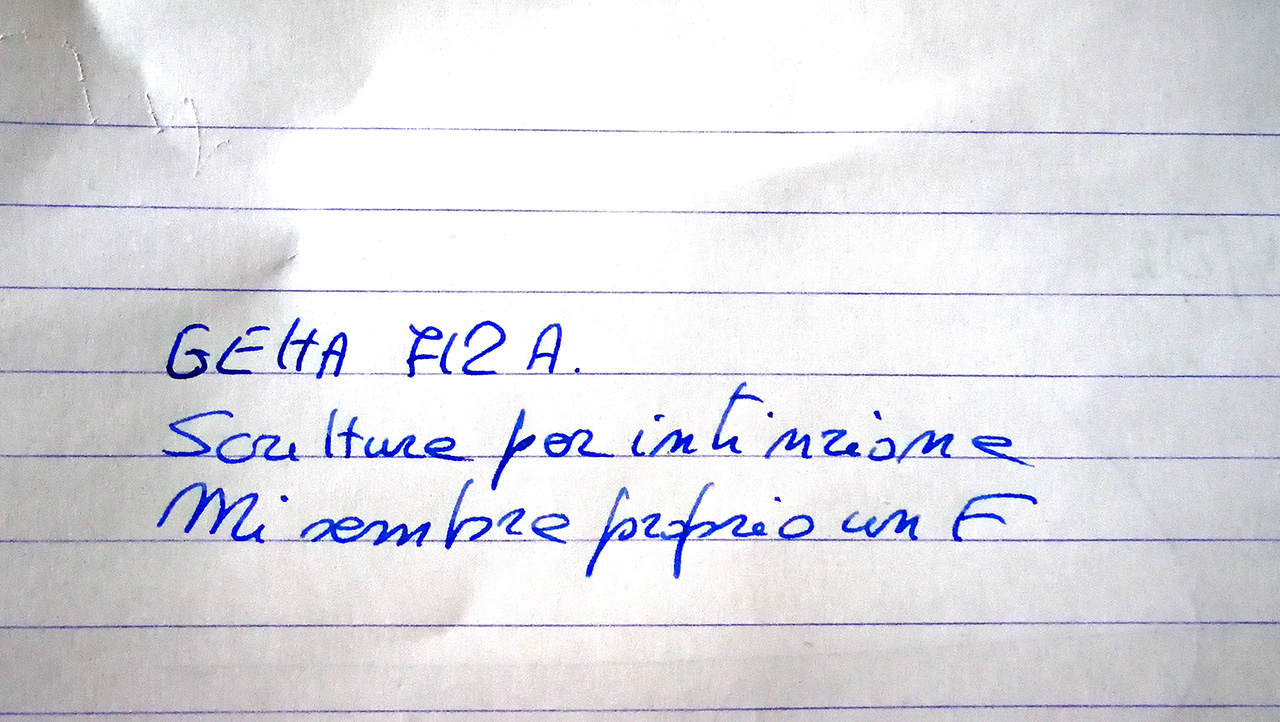 GEHA F12 A.
Scritture per intinzione
Mi sembre proprio un F